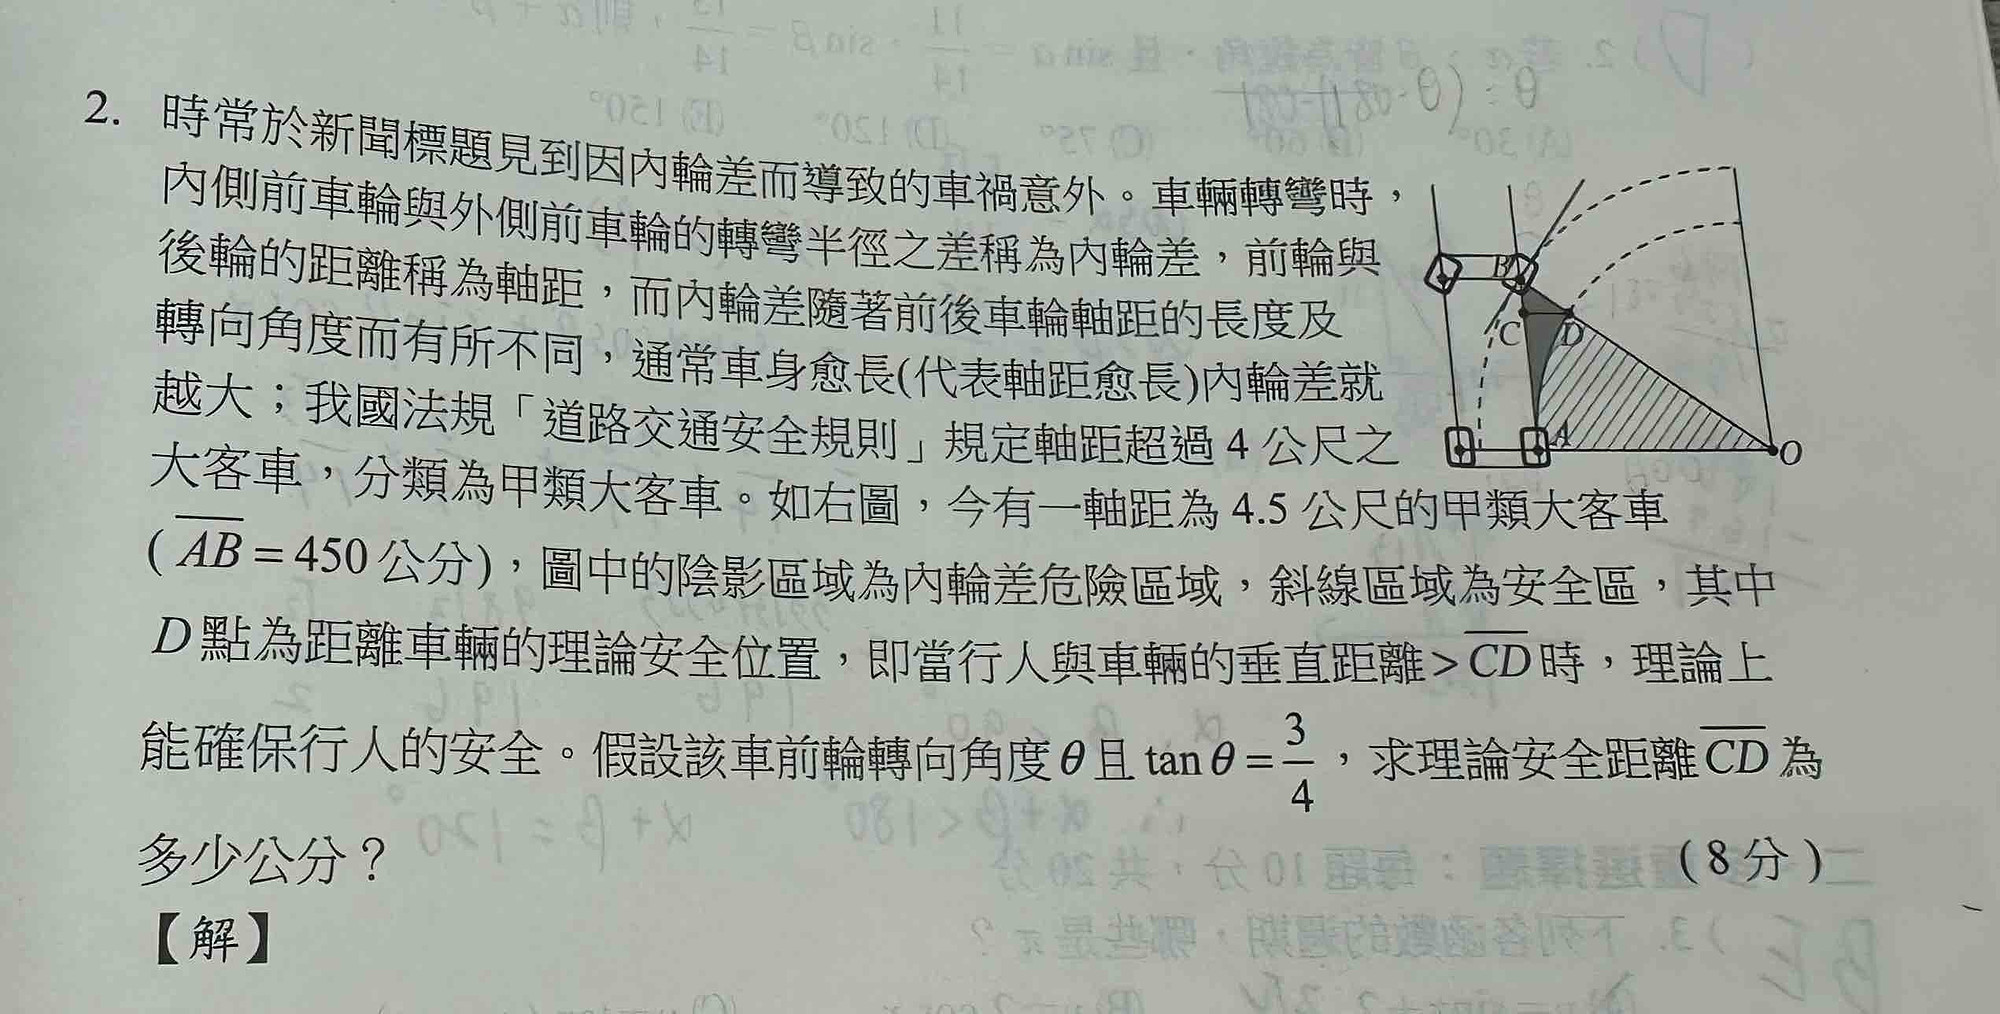 2. 時常於新聞標題見到因內輪差而導致的車禍意外。車輛轉彎時，
內側前車輪與外側前車輪的轉彎半徑之差稱為內輪差，前輪與
後輪的距離稱為軸距，而內輪差隨著前後車輪軸距的長度及
轉向角度而有所不同，通常車身愈長(代表軸距愈長)內輪差就
越大；我國法規「道路交通安全規則」規定軸距超過 4 公尺之
大客車，分類為甲類大客車。如右圖，今有一軸距為 4.5 公尺的甲類大客車
( \overline{AB} = 450 公分)，圖中的陰影區域為內輪差危險區域，斜線區域為安全區，其中
D 點為距離車輛的理論安全位置，即當行人與車輛的垂直距離 > \overline{CD} 時，理論上
能確保行人的安全。假設該車前輪轉向角度 θ 且 tan θ = 3/4，求理論安全距離 \overline{CD} 為
多少公分？ (8 分)
【解】
B
C D
A O